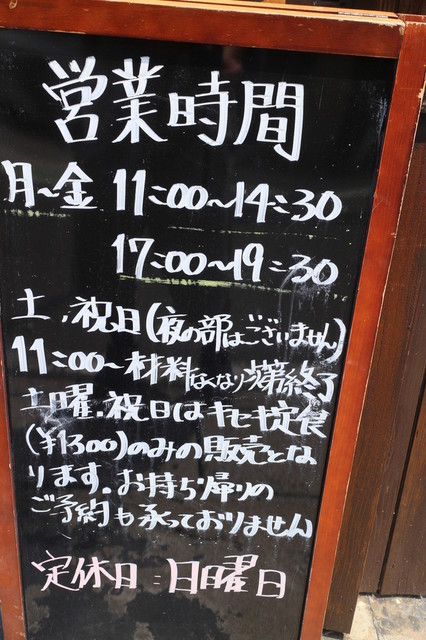 営業時間
月~金 11:00~14:30
17:00~19:30
土.祝日(夜の部はございません)
11:00~材料なくなり次第終了
土曜.祝日はキセキ定食
(¥1300)のみの販売とな
ります。お持ち帰りの
ご予約も承っておりません
定休日:日曜日